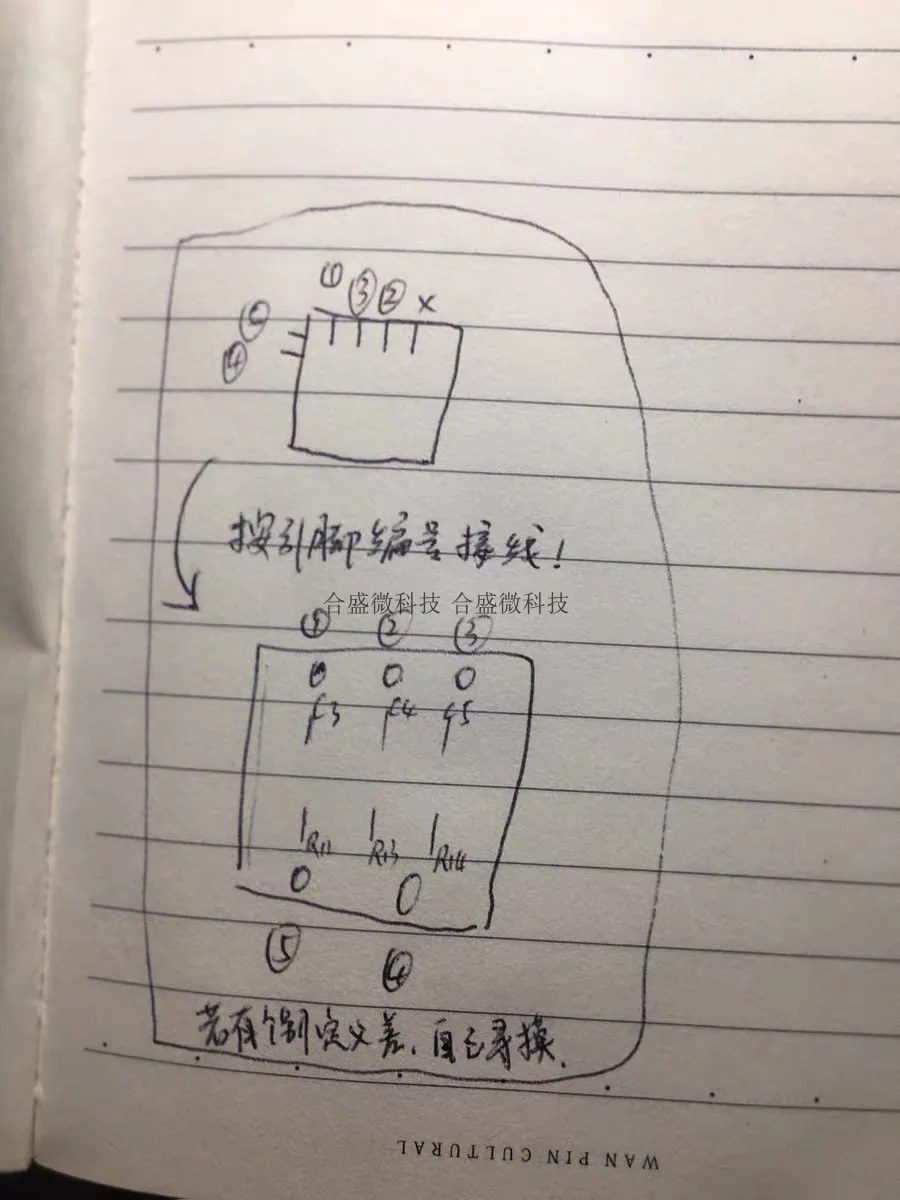 ① ③ ② ×
⑤
④
按引脚编号接线！
合盛微科技 合盛微科技
① ② ③
f3 f4 f5
R11 R13 R14
⑤ ④
若有个别定义差，自己寻摸．
WAN PIN CULTURAL